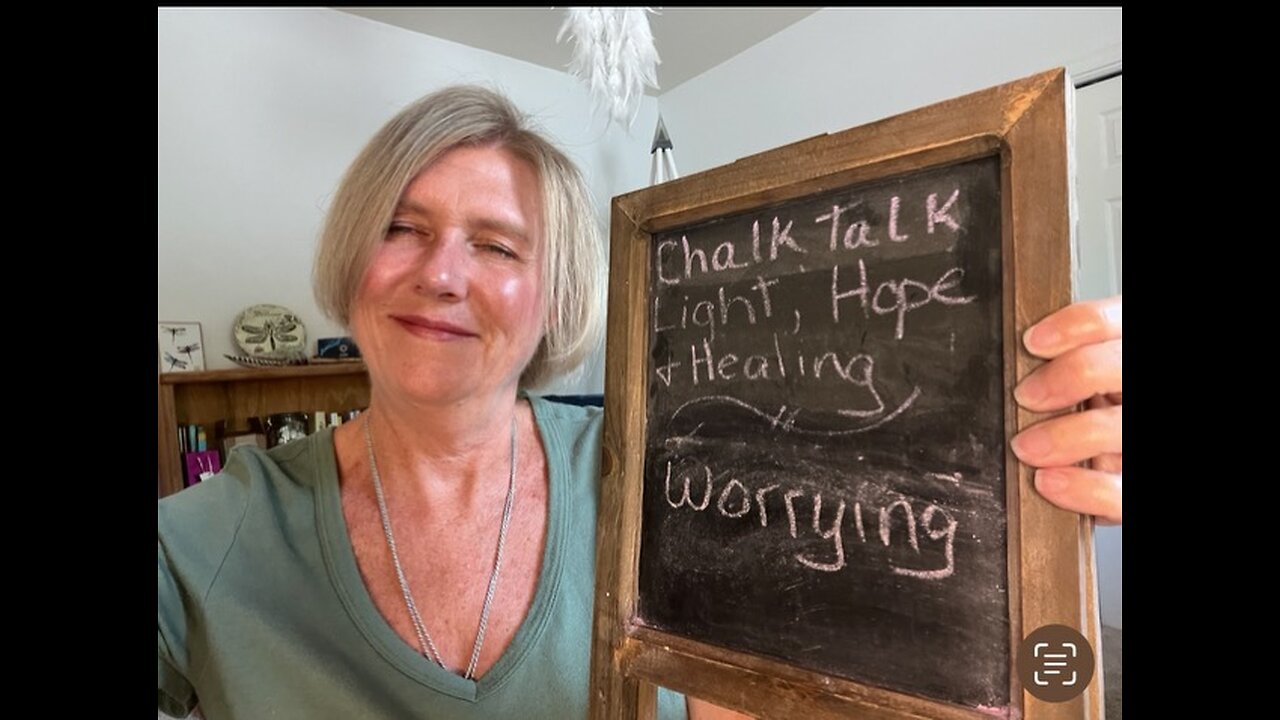 Chalk Talk
Light, Hope
+ Healing
Worrying